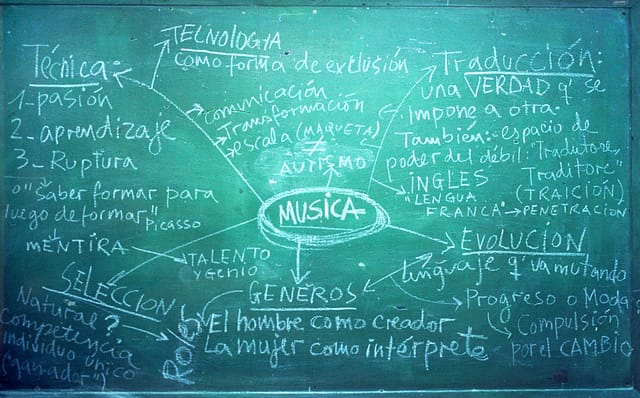 Técnica:
1-pasión
2-aprendizaje
3-Ruptura
o "saber formar para
luego deformar"
Picasso
MENTIRA
TALENTO
y GENIO
TECNOLOGIA
como forma de exclusión
comunicación
Transformación
escala (MAQUETA)
AUTISMO
MUSICA
Traducción:
una VERDAD q' se
impone a otra.
También: espacio de
poder del débil: "Tradutore,
Traditore"
(TRAICIÓN)
INGLES
"LENGUA
FRANCA" → PENETRACION
EVOLUCIÓN
Linguaje q' va mutando
Progreso o Moda
Compulsión
por el CAMBIO
GENEROS
Roles
El hombre como creador
La mujer como intérprete
SELECCION
Natural?
Competencia
individuo único
("ganador")